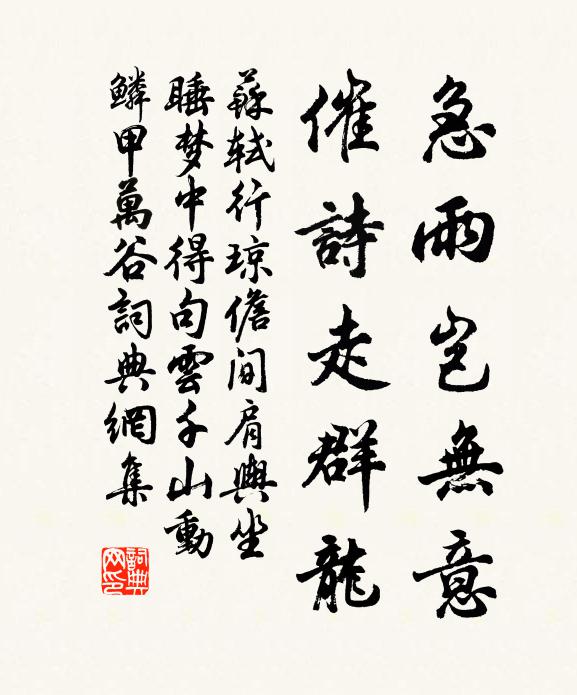 急雨豈無意
催詩走群龍
蘇軾行琼儋间肩輿坐
睡梦中得句雲千山動
鱗甲萬谷詞典網集
詞典网印